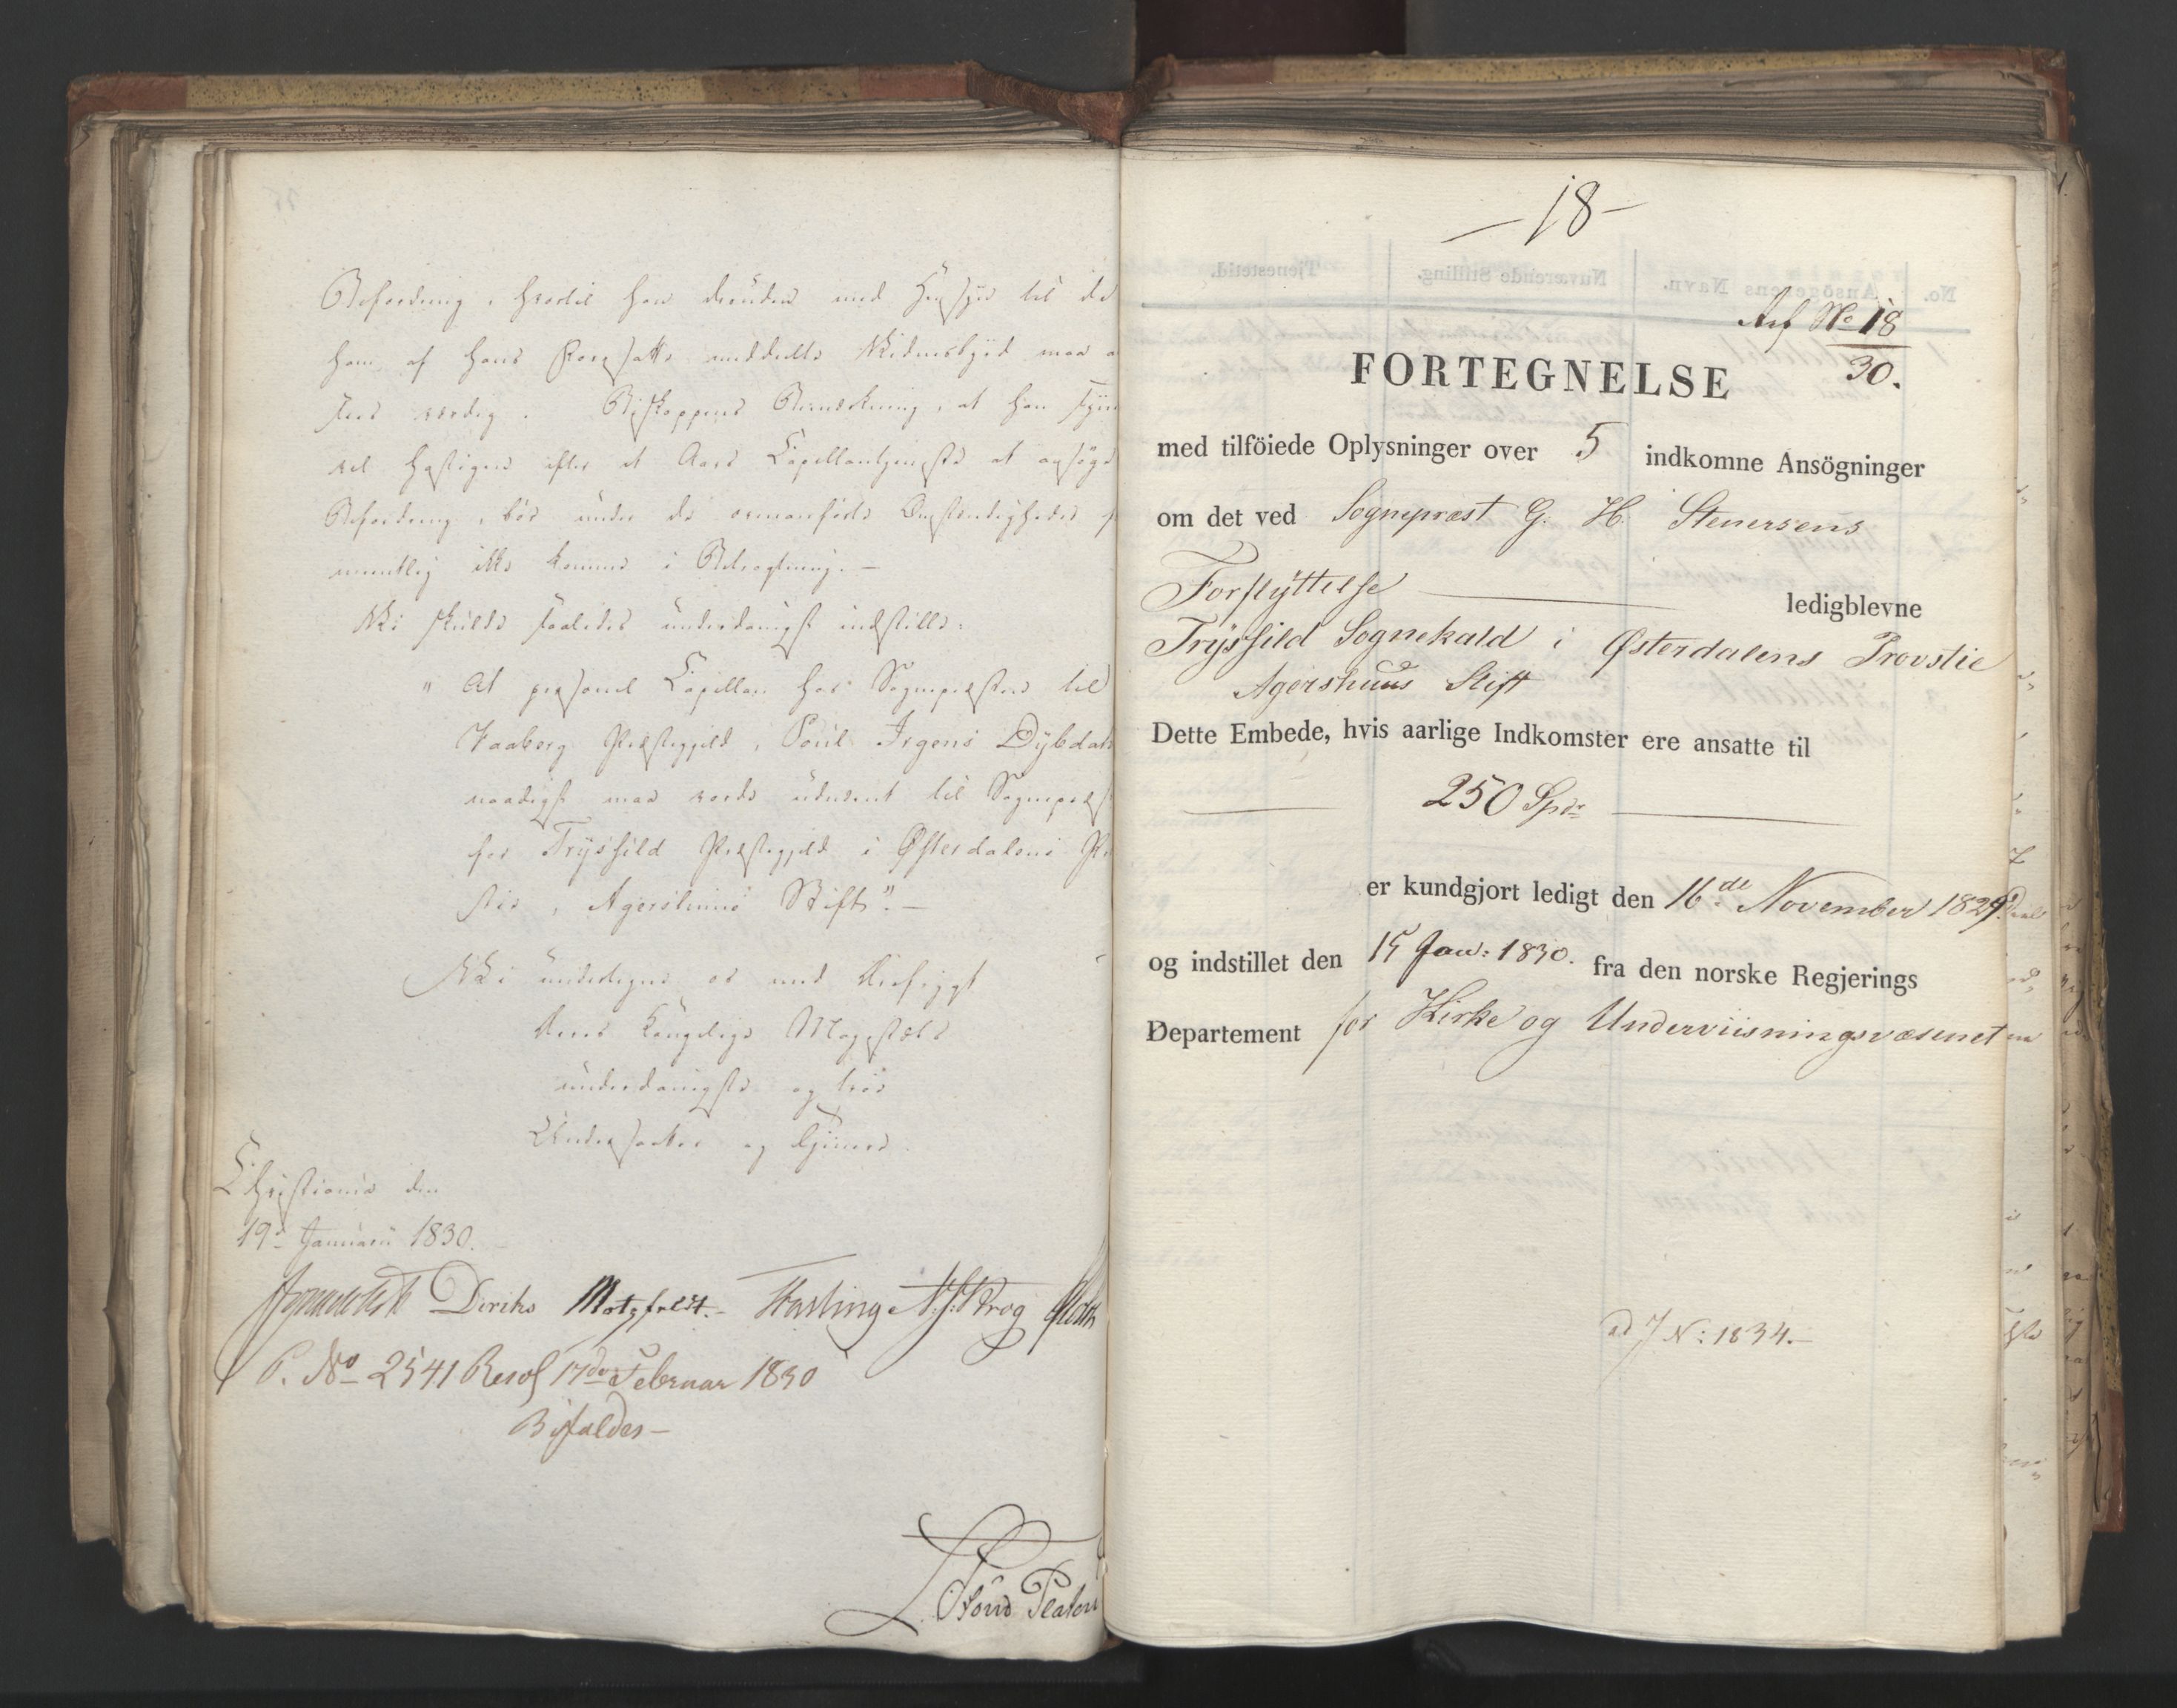 Befordring, hvortil han desuden med Hensyn til de
ham af hans Foresatte meddeelte Vidnesbyrd maa a
sees værdig. Biskoppens Bemærkning, at han synes
vel hastigen efter et Aars Capellantjeneste at ansøge
Befordring, bør under de ovenanførte Omstændigheder
mentlig ikke komme i Betragtning. —
Vi skulde saaledes underdanigst indstille:
"At personel Capellan hos Sognepræsten til
Faaberg Præstegjeld, Poul Irgens Dybdahl
naadigst maa vorde udnævnt til Sognepræst
for Trysfild Præstegjeld i Østerdalens Pro
stie, Agershuus Stift". —
Vi undertegne os med dybeste
Deres Kongelige Majestæts
underdanigste og troe
Undersaatter og Tjenere.
Christiania den
19de Januarii 1830.
Diriks Motzfeldt. Fasting N. J. Krog Holst
P. No 2541 Resol 17de Februar 1830
Bifaldes —
Platen
— 18 —
Ref No 18
30.
FORTEGNELSE
med tilföiede Oplysninger over 5 indkomne Ansögninger
om det ved Sognepræst G. H. Stenersens
Forflyttelse ledigblevne
Trysfild Sognekald i Østerdalens Provstie
Agershuus Stift
Dette Embede, hvis aarlige Indkomster ere ansatte til
250 Spdr
er kundgjort ledigt den 16de November 1829
og indstillet den 15 Jan: 1830. fra den norske Regjerings
Departement for Kirke og Underviisningsvæsenet
ad J N: 1834. —